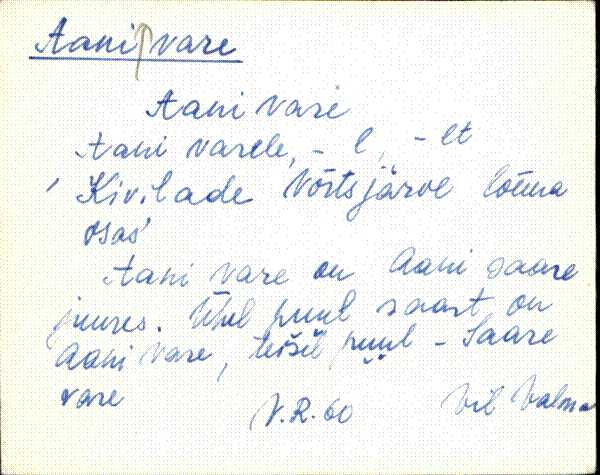 Aani vare
Aani vare
Aani varele, -l, -lt
Kivilade Võrtsjärve lõuna
osas
Aani vare on Aani saare
juures. Ühel puul saart on
Aani vare, teisel puul - Saare
vare
V.R. 60 Vil